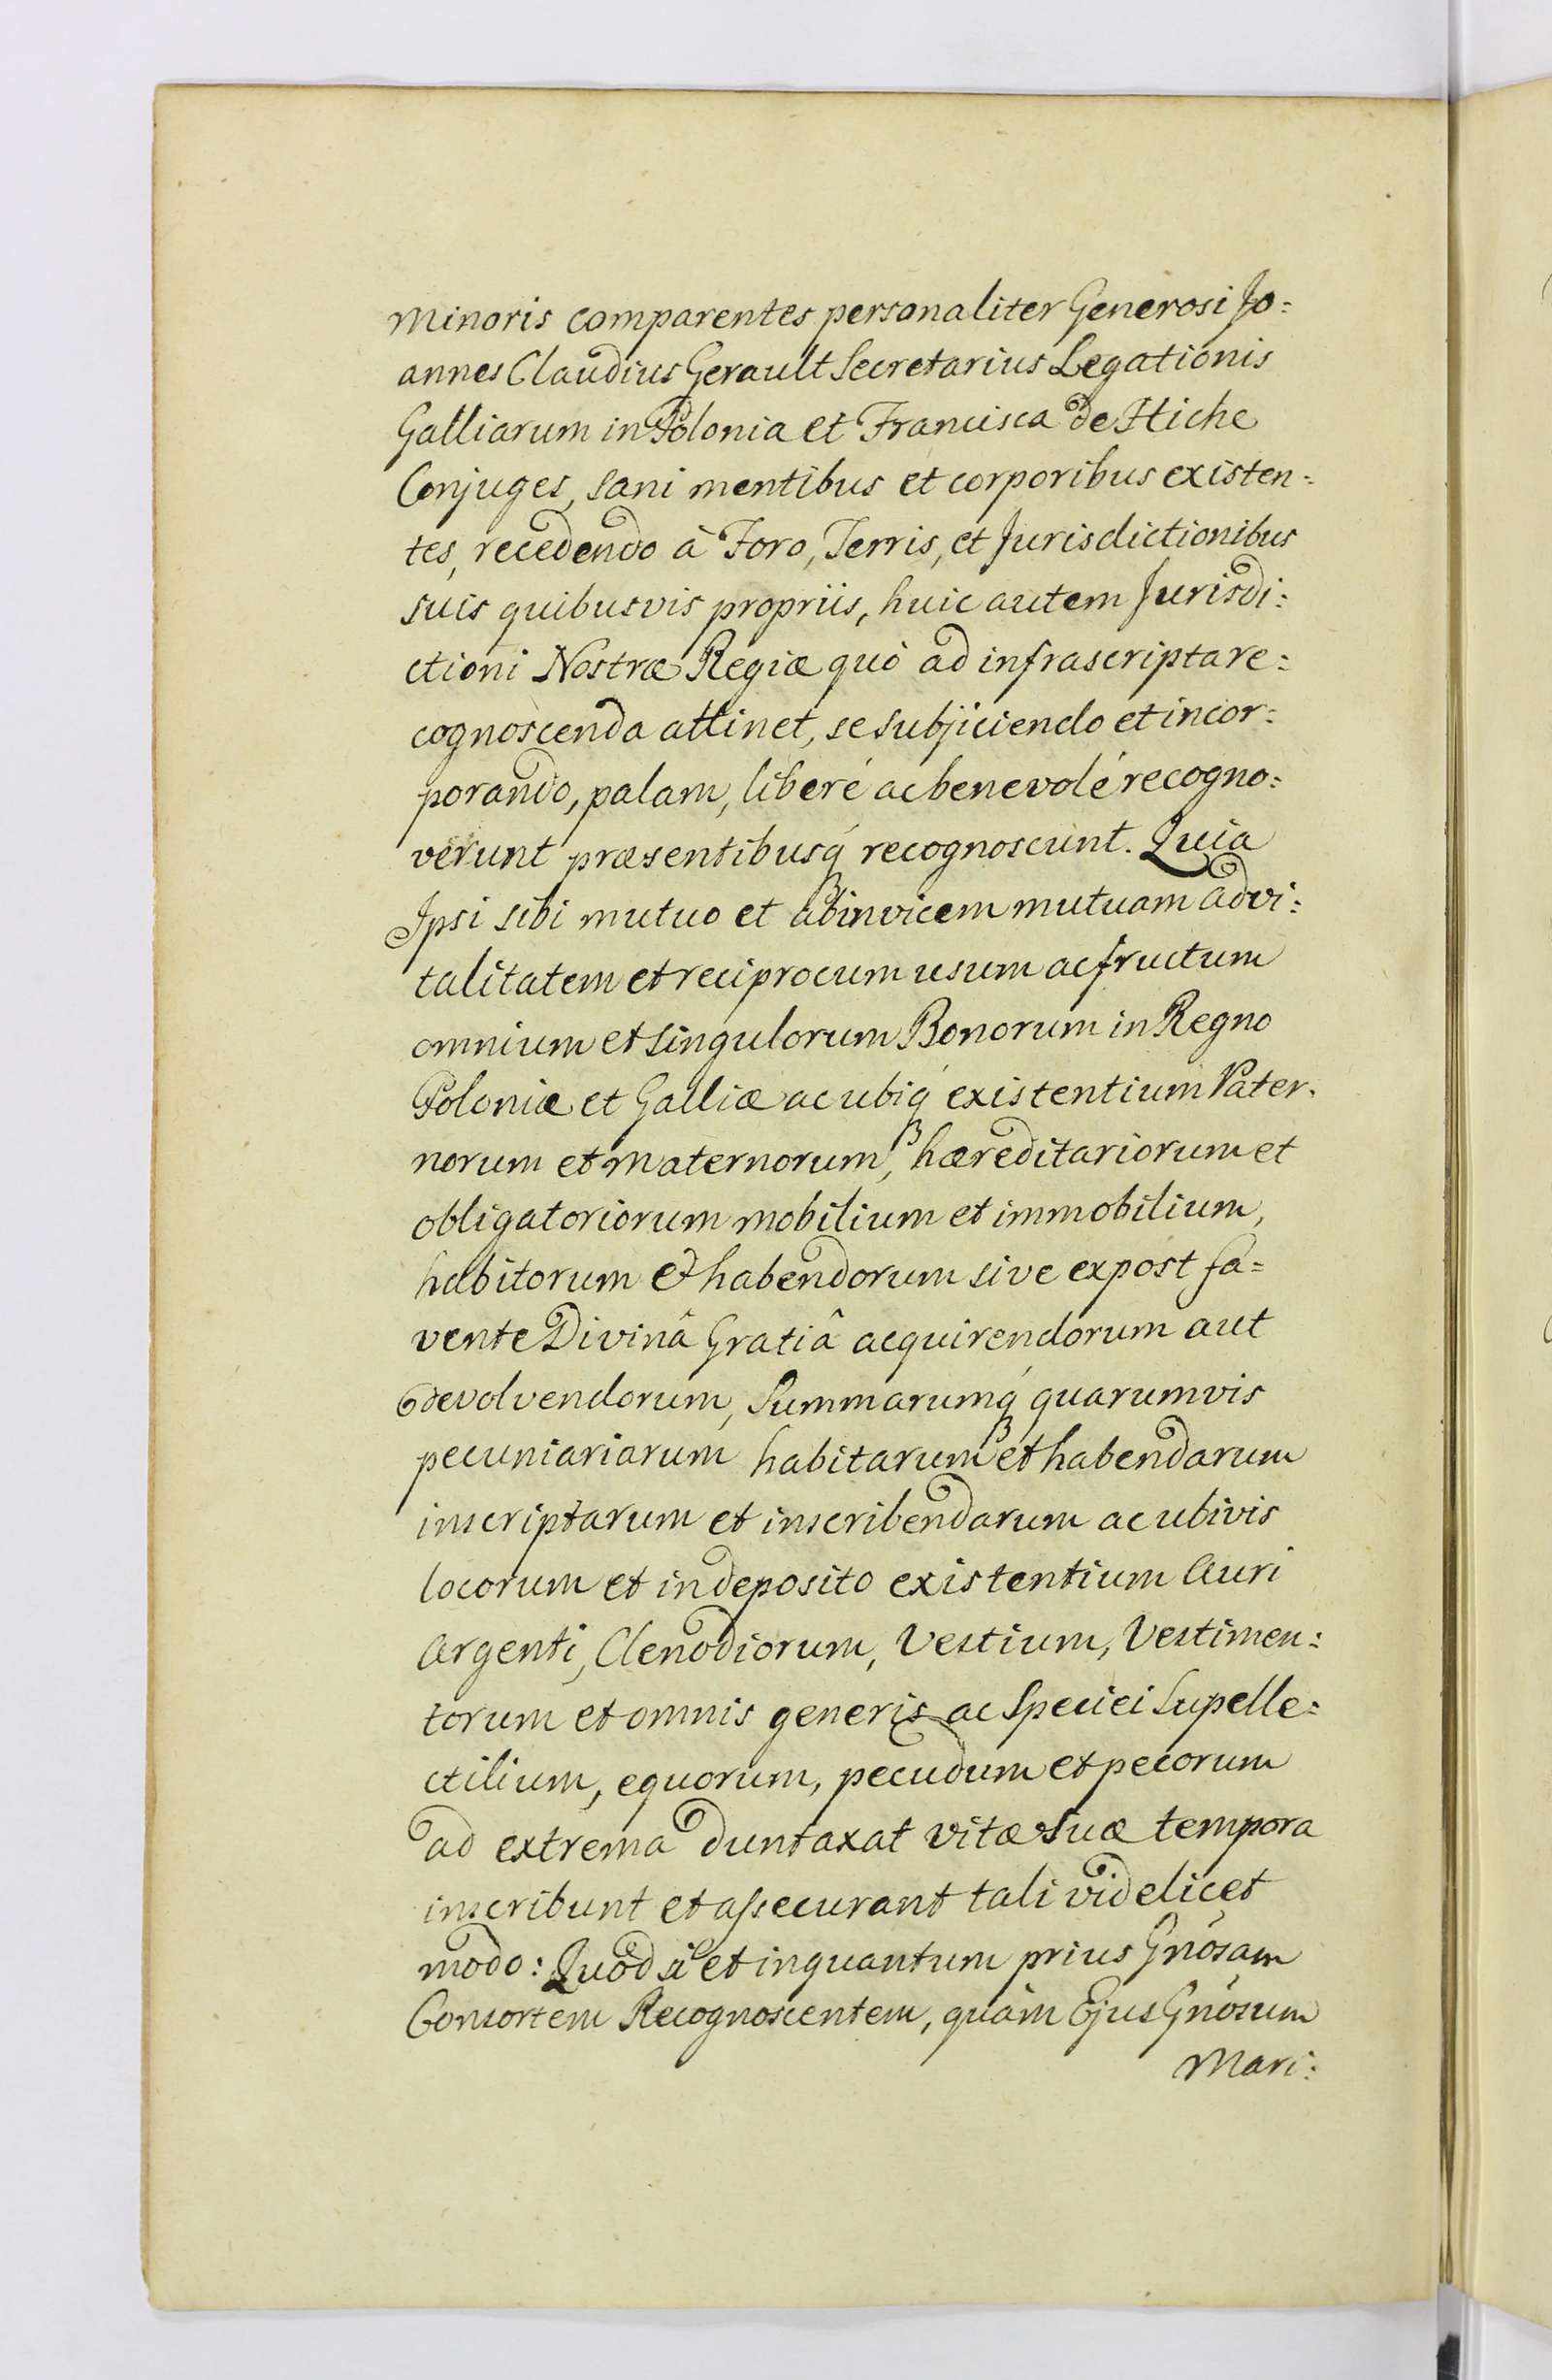 Minoris comparentes personaliter Generosi Jo:
annes Claudius Gerault Secretarius Legationis
Galliarum in Polonia et Francisca de Hiche
Conjuges, sani mentibus et corporibus existen:
tes, recedendo à Foro, Terris, et Jurisdictionibus
suis quibusvis propriis, huic autem Jurisdi:
ctioni Nostræ Regiæ quò ad infrascripta re:
cognoscenda attinet, se subjiciendo et incor:
porando, palam, liberé ac benevolé recogno:
verunt præsentibusq́ recognoscunt. Quia
Ipsi sibi mutuo et abinvicem mutuam advi:
talitatem et reciprocum usum ac fructum
omnium et singulorum Bonorum in Regno
Poloniæ et Galliæ ac ubiq́ existentium Pater:
norum et Maternorum, hæreditariorum et
obligatoriorum mobilium et immobilium,
habitorum & habendorum sive expost fa=
vente Divinâ Gratiâ acquirendorum aut
devolvendorum, Summarumq́ quarumvis
pecuniariarum habitarum et habendarum
inscriptarum et inscribendarum ac ubivis
locorum et in deposito existentium Auri
Argenti, Clenodiorum, Vestium, Vestimen:
torum et omnis generis ac Speciei Supelle:
ctilium, equorum, pecudum et pecorum
ad extrema duntaxat vitæ suæ tempora
inscribunt et assecurant tali videlicet
modo: Quod si et inquantum prius Gnõsam
Consortem Recognoscentem, quàm Ejus Gnõsum
Mari: